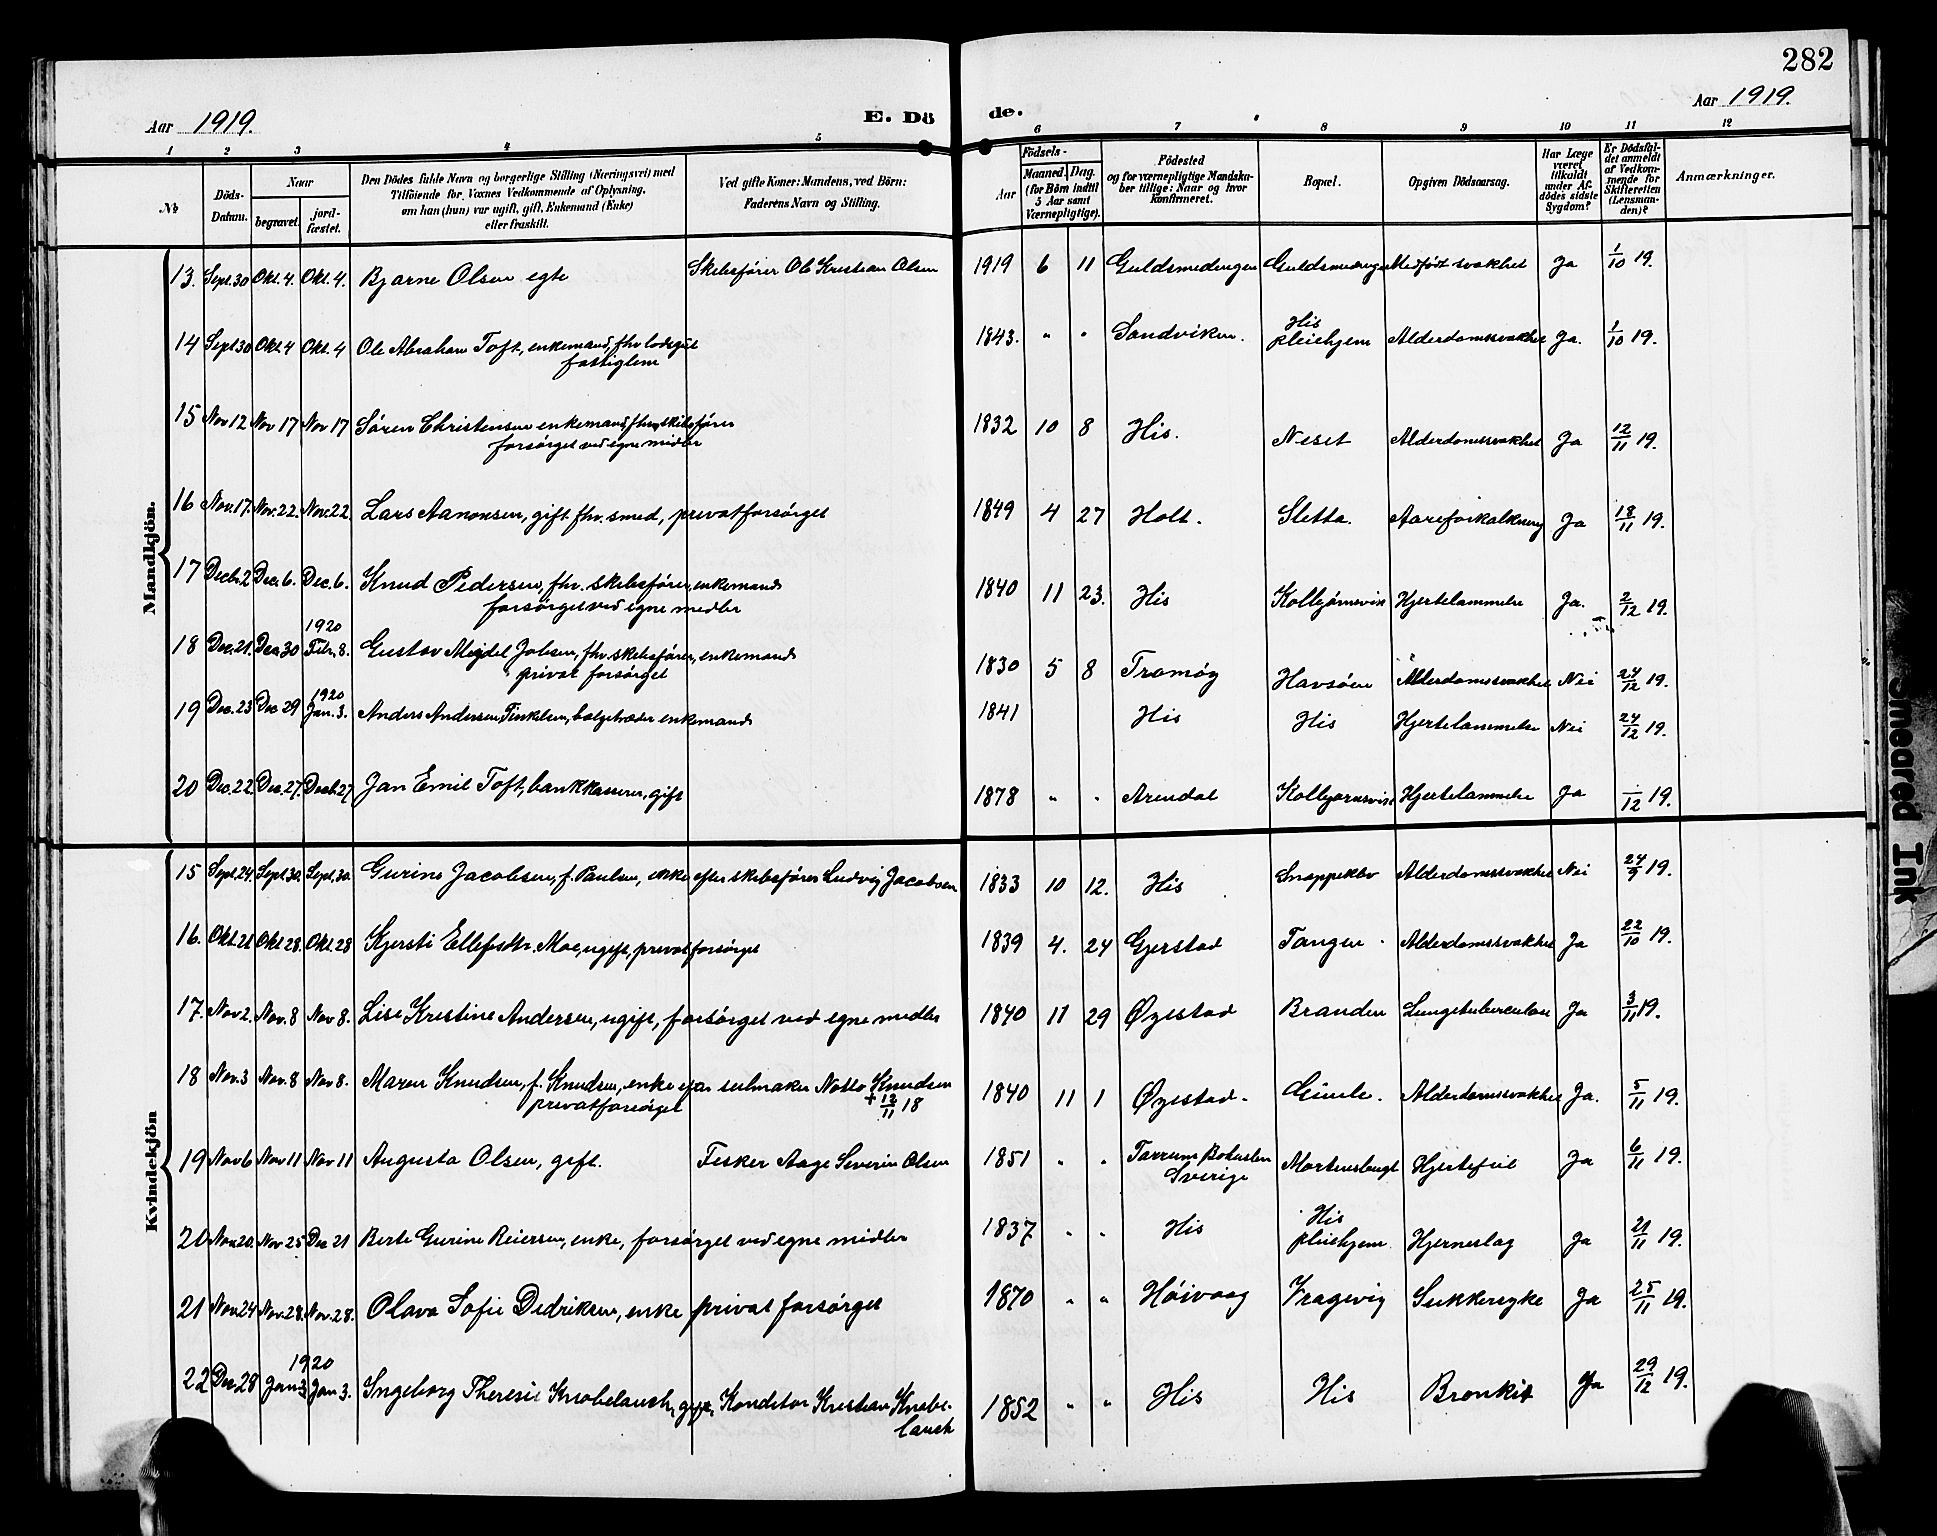 282
Aar 1919.
E. Dö
de.
Aar 1919.
1 2 3 4 5 6 7 8 9 10 11 12
№
Döds-
Datum.
Naar
begravet.
jord-
fæstet.
Den Dödes fulde Navn og borgerlige Stilling (Næringsvei) med
Tilföiende for Voxnes Vedkommende af Oplysning,
om han (hun) var ugift, gift, Enkemand (Enke)
eller fraskilt.
Ved gifte Koner: Mandens, ved Börn:
Faderens Navn og Stilling.
Födsels-
Aar
Maaned. Dag.
(for Börn indtil
5 Aar samt
Værnepligtige).
Födested
og for værnepligtige Mandska-
ber tillige: Naar og hvor
konfirmeret.
Bopæl.
Opgiven Dödsaarsag.
Har Læge
været
tilkaldt
under Af-
dödes sidste
Sygdom?
Er Dödsfal-
det anmeldt
af Vedkom-
mende for
Skifteretten
(Lensman-
den)?
Anmærkninger.
Mandkjön.
13. Sept. 30 Okt. 4. Okt. 4. Bjarne Olsen egte Skibsfører Ole Kristian Olsen 1919 6 11 Guldsmedengen Guldsmedengen Medfødt svakhet Ja 1/10 19.
14 Sept 30 Okt. 4 Okt. 4 Ole Abraham Toft, enkemand, fhv lods 1843. " " Sandviken. His Pleiehjem Alderdomssvakhet Ja. 1/10 19.
fattiglem
15 Nov 12 Nov 17 Nov 17 Søren Christensen enkemand, fhv. skibsfører 1832 10 8 His. Neset Alderdomssvakhet Ja 12/11 19.
forsørget ved egne midler
16 Nov. 17. Nov. 22. Nov. 22 Lars Aanonsen, gift fhv. smed, privatforsørget 1849 4 27 Holt. Sletta. Aareforkalkning Ja 18/11 19.
17 Decbr. 2 Dec. 6. Dec. 6. Knud Pedersen, fhv. skibsfører, enkemand 1840 11 23. His Kolbjørnsvik Hjertelammelse Ja. 2/12 19.
forsørget ved egne midler
1920
18 Dec. 21. Dec. 30 Febr. 8. Gustav Meydel Jobsen, fhv. skibsfører, enkemand 1830 5 8 Tromøy Havsöen Alderdomssvakhet Nei 24/12 19.
privat forsørget
1920
19 Dec. 23 Dec 29 Jan. 3. Anders Andersen, Finkelsen, bølgetræder enkemand 1841 His His Hjertelammelse Nei 24/12 19.
20 Dec. 22 Dec. 27. Decb. 27 Jan Emil Toft, bankkasserer, gift 1878 " " Arendal Kolbjørnsvik Hjertelammelse Ja /12 19.
Kvindekjön
15 Sept. 24. Sept. 30. Sept. 30. Gurine Jacobsen, f. Paulsen, enke efter skibsfører Ludvig Jacobsen 1833 10 12. His Snappekilv Alderdomssvakhet Nei 24/9 19.
16. Okt. 21 Okt. 28. Okt. 28 Kjersti Ellefsdtr. Moe, ugift, privat forsørget 1839 4. 24 Gjerstad Tangen Alderdomssvakhet Ja 22/10 19.
17. Nov 2. Nov. 8 Nov 8. Lise Kristine Andersen, ugift, forsørget ved egne midler 1840 11 29 Øyestad Branden Lungetuberculose Ja 3/11 19.
18 Nov. 3 Nov. 8 Nov 8. Maren Knudsen, f. Knudsen, enke efter seilmaker Notto Knudsen 1840 11 1 Øyestad. Gimle. Alderdomssvakhet Ja. 5/11 19.
privatforsørget + 12/11 18
19 Nov 6 Nov 11 Nov 11 Augusta Olsen, gift. Fisker Aage Severin Olsen 1851 " " Tanum Bohuslen Mortensbugt Hjertefeil Ja 6/11 19.
Sverige
20 Nov. 20. Nov 25 Dec 21 Berte Gurine Reiersen, enke, forsørget ved egne midler 1837 " " His His Pleiehjem Hjerneslag Ja 21/11 19.
21 Nov 24 Nov. 28. Nov. 28. Olava Sofie Didriksen, enke privat forsørget 1870 " " Höivaag Vragevig Sukkersyke Ja 25/11 19.
1920
22 Dec. 28 Jan 3 Jan 3. Ingeborg Theresie Knobelauch, gift, Konditor Kristian Knobe- 1852 " " His His Bronkit Ja 29/12 19.
lauch
Smeared Ink